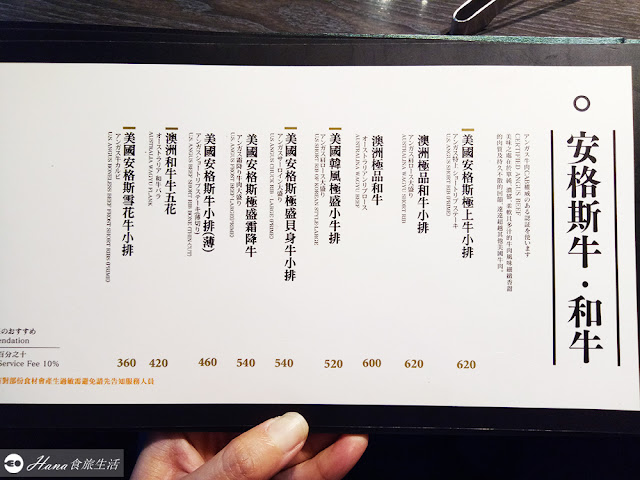 安格斯牛・和牛
アンガス牛肉CAB權威のある認証を使います
CERTIFIED ANGUS BEEF
美國安格斯極上牛小排
アンガス特上ショートリブステーキ
U.S ANGUS BEEF SHORT RIB (PRIME)
620
澳洲極品和牛小排
アンガス肩ロース大盛り
AUSTRALIA WAGYU SHORT RIB
620
澳洲極品和牛
オーストラリアンリブロース
AUSTRALIA WAGYU BEEF
600
美國韓風極盛小牛排
アンガス肩ロース大盛り
US SHORT RIB OF KOREAN STYLE-LARGE
520
美國安格斯極盛貝身牛小排
アンガスサーロイン大盛り
U.S ANGUS CHUCK RIB - LARGE (PRIME)
540
美國安格斯極盛霜降牛
アンガス霜降り牛肉大盛り
U.S ANGUS FROST BEEF LARGE(PRIME)
540
美國安格斯牛小排(薄)
アンガスショートリブステーキ(薄切り)
U.S ANGUS BEEF SHORT RIB BONE (THIN-CUT)
460
澳洲和牛牛五花
オーストラリア 和牛バラ
AUSTRALIA WAGYU FLANK
420
美國安格斯雪花牛小排
アンガス牛カルビ
U.S ANGUS BONELESS BEEF FROST SHORT RIBS (PRIME)
360
のおすすめ
endation
百分之十
Service Fee 10%
對部份食材會產生過敏需避免請先告知服務人員
Hana食旅生活